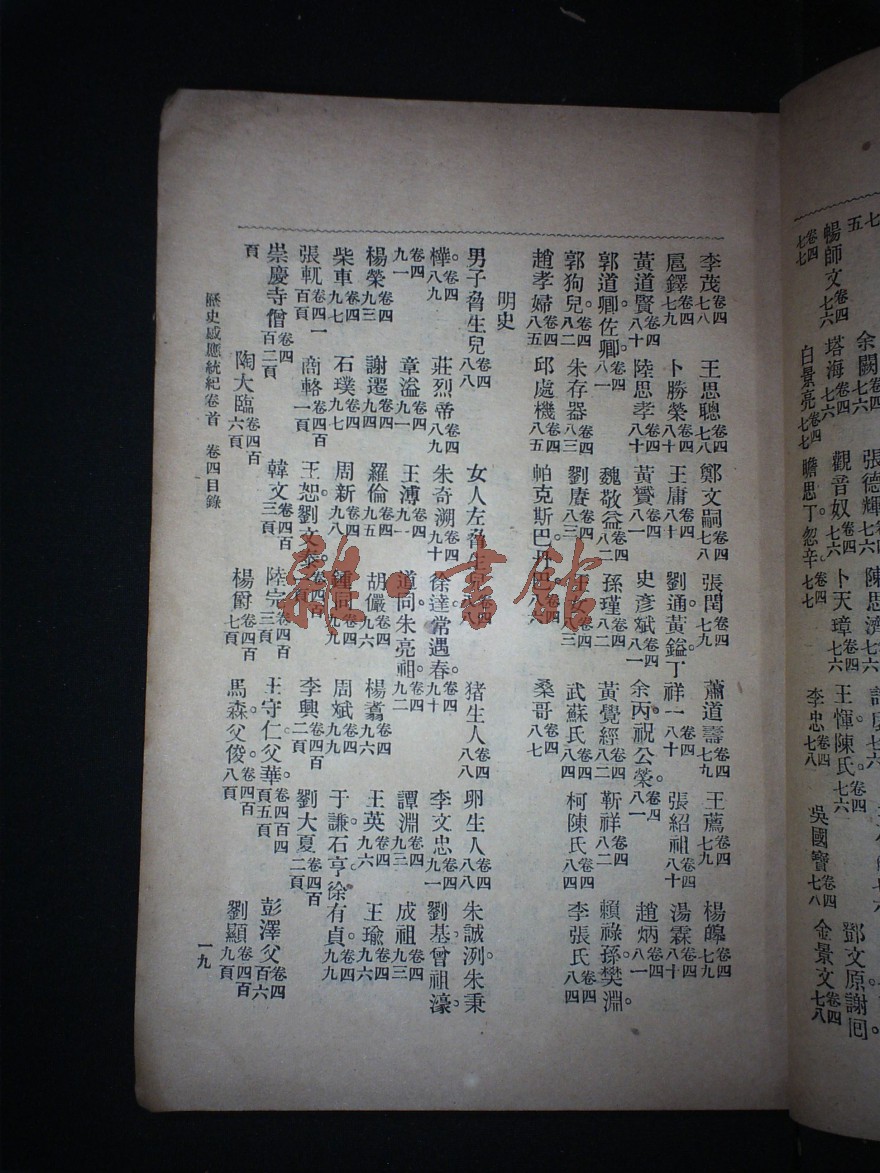 李茂卷四七八 王思聰卷四七八 鄭文嗣卷四七八 張閏卷四七九 蕭道壽卷四七九 王薦卷四七九 楊皞卷四七九
扈鐸卷四七九 卜勝榮卷四八十 王庸卷四八十 劉通黃鎰丁祥一卷四八十 張紹祖卷四八十 湯霖卷四八十
黃道賢卷四八十 陸思孝卷四八十 黃贇卷四八一 史彥斌卷四八一 余丙祝公榮卷四八一 趙炳卷四八一
郭道卿佐卿。卷四八一 魏敬益卷四八二 孫瑾卷四八二 黃覺經卷四八二 靳祥卷四八二 賴祿孫樊淵。
郭狗兒。卷四八二 朱存器卷四八三 劉廙卷四八三 武蘇氏卷四 柯陳氏卷四八四 李張氏卷四八四
趙孝婦卷四八五 邱處機卷四八五 帕克斯巴 桑哥卷四八七
明史
男子脅生兒卷四八八 女人左脅生兒卷四八八 猪生人卷四八八 卵生人卷四八八 朱誠洌朱秉
橞。卷四八九 莊烈帝卷四八九 朱奇溯卷四九十 徐達常遇春。卷四九十 李文忠卷四九一 劉基曾祖濠。
卷四九一 章溢卷四九一 王溥卷四九一 道同朱亮祖。卷四九二 譚淵卷四九三 成祖卷四九三
楊榮卷四九三 謝遷卷四九四 羅倫卷四九五 胡儼卷四九六 楊翥卷四九六 王英卷四九六 王瑜卷四九六
柴車卷四九七 石璞卷四九七 周新卷四九八 鍾同卷四九九 周斌卷四九九 于謙石亨。徐有貞。卷四九九
張軏卷四一百頁 商輅卷四百一頁 王恕。劉文泰。卷四百一頁 李興卷四百二頁 劉大夏卷四百二頁
崇慶寺僧卷四百二頁 韓文卷四百三頁 陸完卷四百三頁 王守仁。父華。卷四百四頁五頁 彭澤父卷四百六
頁 陶大臨卷四百六頁 楊爵卷四百七頁 馬森。父俊。卷四百八頁 劉顯卷四百九頁
歷史感應統紀卷首 卷四目錄 一九
七
五
暢師文卷四七六 塔海卷四七六 觀音奴卷四七六 卜天璋卷四七六 王惲。陳氏。卷四七六
余闕卷四七六 張德輝卷四七六 陳思濟卷四七六
卷四七七 白景亮卷四七七 瞻思丁忽辛。卷四七七 李忠卷四七八 吳國寶卷四七八 金景文卷四七八
鄧文原。謝囘。
雜·書館